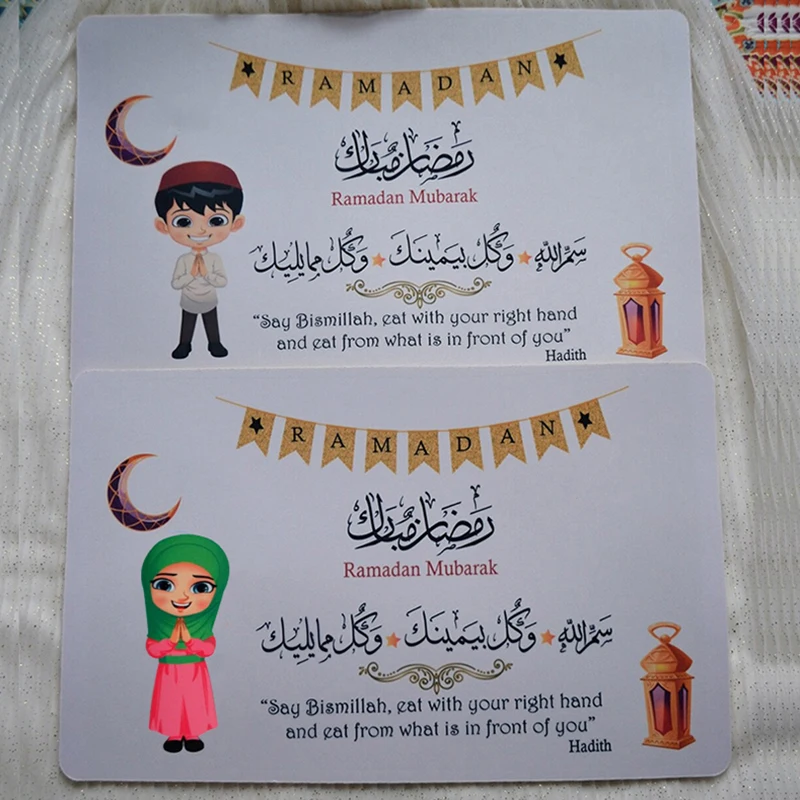 RAMADAN
رمضان مبارك
Ramadan Mubarak
سَمِّ اللهَ وَكُلْ بِيَمِينِكَ وَكُلْ مِمَّا يَلِيكَ
“Say Bismillah, eat with your right hand
and eat from what is in front of you”
Hadith
RAMADAN
رمضان مبارك
Ramadan Mubarak
سَمِّ اللهَ وَكُلْ بِيَمِينِكَ وَكُلْ مِمَّا يَلِيكَ
“Say Bismillah, eat with your right hand
and eat from what is in front of you”
Hadith